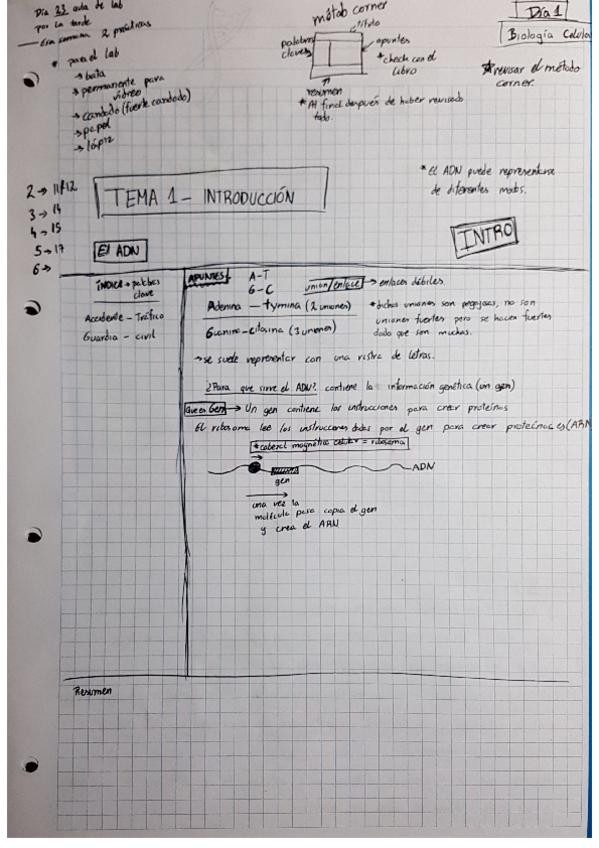 Día 23 aula de lab
por la tarde
esa semana 2 prácticas
* para el lab
→ bata
→ permanente para
vidreo
→ candado (fuerte candado)
→ papel
→ lápiz
métob corner
título
palabras
claves
apuntes
* check con el
libro
resumen
* Al final después de haber revisado
todo.
Día 1
Biología Celula
* revisar el método
corner.
* El ADN puede representarse
de diferentes modos.
2 → 11/12
3 → 14
4 → 15
5 → 17
6 →
TEMA 1 - INTRODUCCIÓN
INTRO
El ADN
ÍNDICE → palabras
clave
Accidente - Tráfico
Guardia - civil
APUNTES
A-T
G-C
unión/enlace → enlaces débiles
Adenina - tymina (2 uniones)
Guanina - citosina (3 uniones)
* dichas uniones son pequeñas, no son
uniones fuertes pero se hacen fuertes
dado que son muchas.
→ se suele representar con una ristra de letras.
¿Para que sirve el ADN?: contiene la información genética (un gen)
Que es Gen → Un gen contiene las instrucciones para crear proteínas
El ribosoma lee las instrucciones dadas por el gen para crear proteínas (ARN
* cabezal magnético = ribosoma
ADN
gen
una vez la
molécula pasa copia el gen
y crea el ARN
Resumen